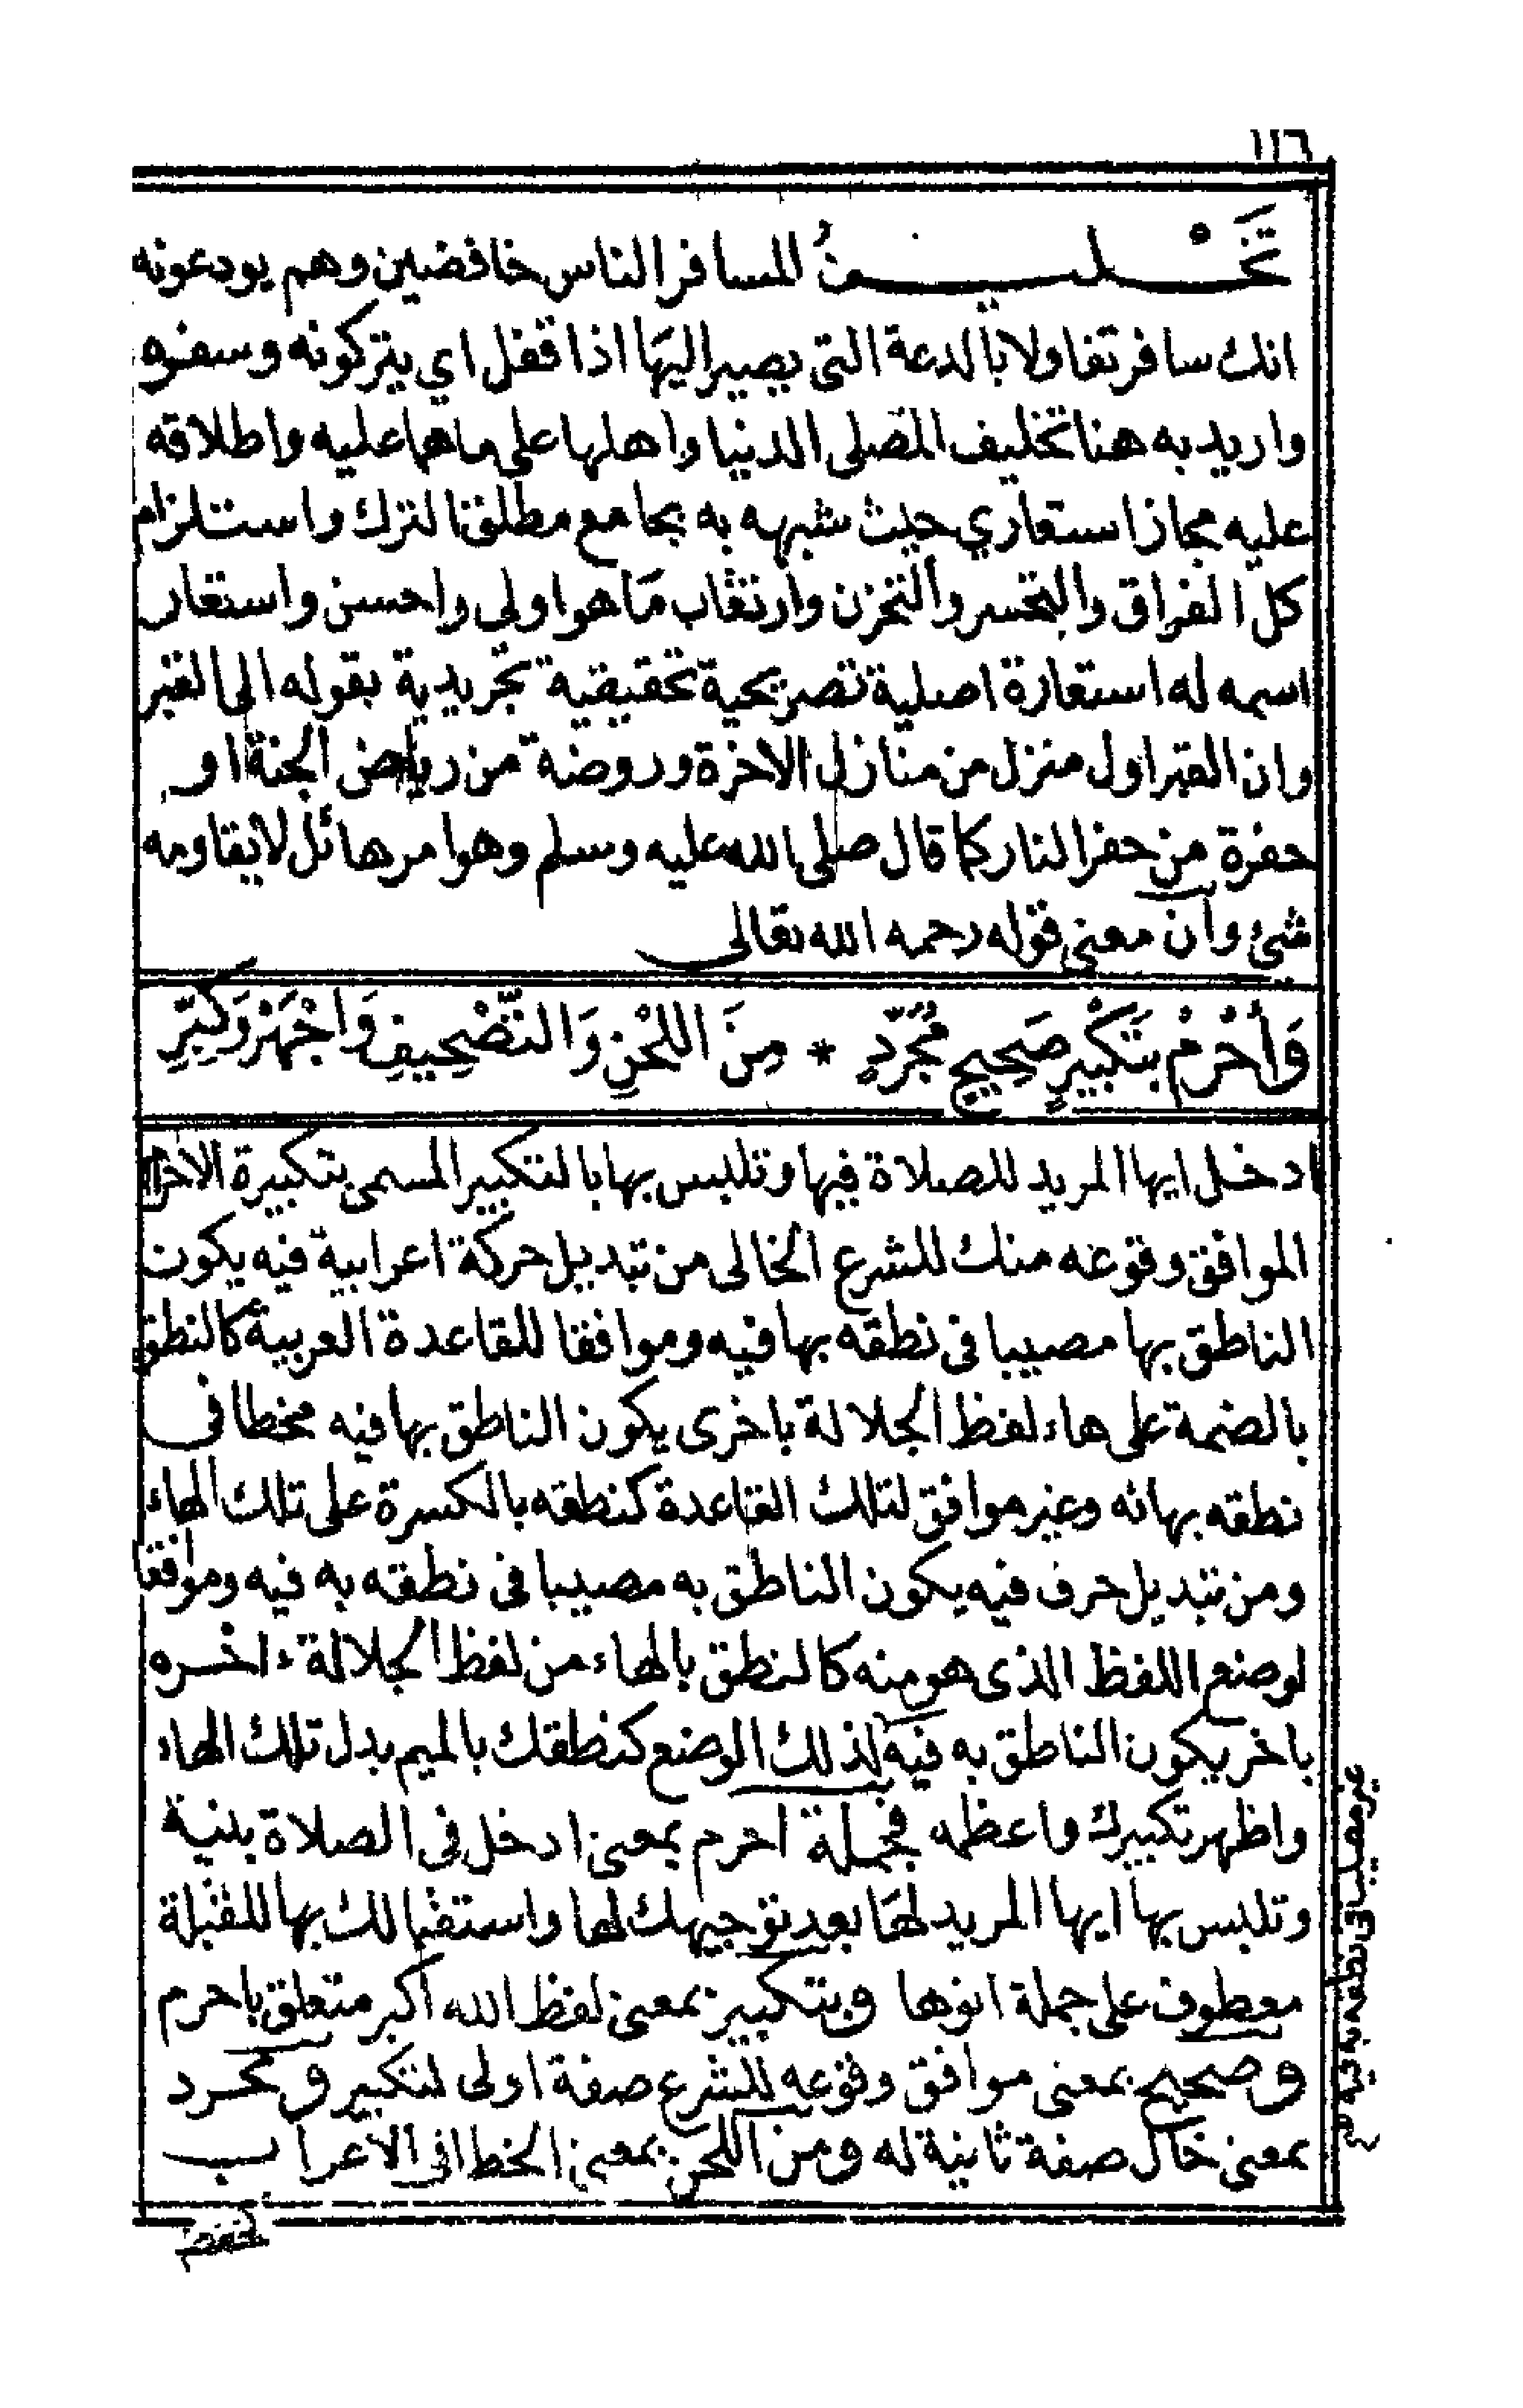 ١١٦
تَخْلِيفُ المسافر الناس خافضين وهم يودعونه
انك سافر تفاولا بالدعة التى يصير اليها اذا قفل اي يتركونه وسفره
واريد به هنا تخليف المصلى الدنيا واهلها على ما هما عليه واطلاقه
عليه مجاز استعاري حيث شبهه به بجامع مطلق الترك واستلزام
كل الفراق والتحسر والتحزن وارتقاب ما هو اولى واحسن واستعار
اسمه له استعارة اصلية تصريحية تحقيقية تجريدية بقوله الى القبر
وان القبر اول منزل من منازل الاخرة وروضة من رياض الجنة او
حفرة من حفر النار كما قال صلى الله عليه وسلم وهو امر هائل لا يقاومه
شئ وان معنى قوله رحمه الله تعالى
وَأَحْرِمْ بِتَكْبِيرٍ صَحِيحٍ مُجَرَّدٍ * مِنَ اللَّحْنِ وَالتَّصْحِيفِ وَاجْهَرْ وَكَبِّرِ
ادخل ايها المريد للصلاة فيها وتلبس بها بالتكبير المسمى بتكبيرة الاحرام
الموافق وقوعه منك للشرع الخالى من تبديل حركة اعرابية فيه يكون
الناطق بها مصيبا فى نطقه بها فيه وموافقا للقاعدة العربية كالنطق
بالضمة على هاء لفظ الجلالة باخرى يكون الناطق بها فيه مخطا فى
نطقه بهائه وغير موافق لتلك القاعدة كنطقه بالكسرة على تلك الهاء
ومن تبديل حرف فيه يكون الناطق به مصيبا فى نطقه به فيه وموافقا
لوضع اللفظ الذى هو منه كالنطق بالهاء من لفظ الجلالة ءاخره
باخر يكون الناطق به فيه لذلك الوضع كنطقك بالميم بدل تلك الهاء
واظهر تكبيرك واعظمه فجملة احرم بمعنى ادخل فى الصلاة بنية
وتلبس بها ايها المريد لها بعد توجيهك لها واستقبالك بها للقبلة
معطوف على جملة انوها وبتكبير بمعنى لفظ الله اكبر متعلق باحرم
وصحيح بمعنى موافق وقوعه للشرع صفة اولى لتكبير ومجرد
بمعنى خال صفة ثانية له ومن اللحن بمعنى الخطا فى الاعراب
غير مصيب فى نطقه به فيه